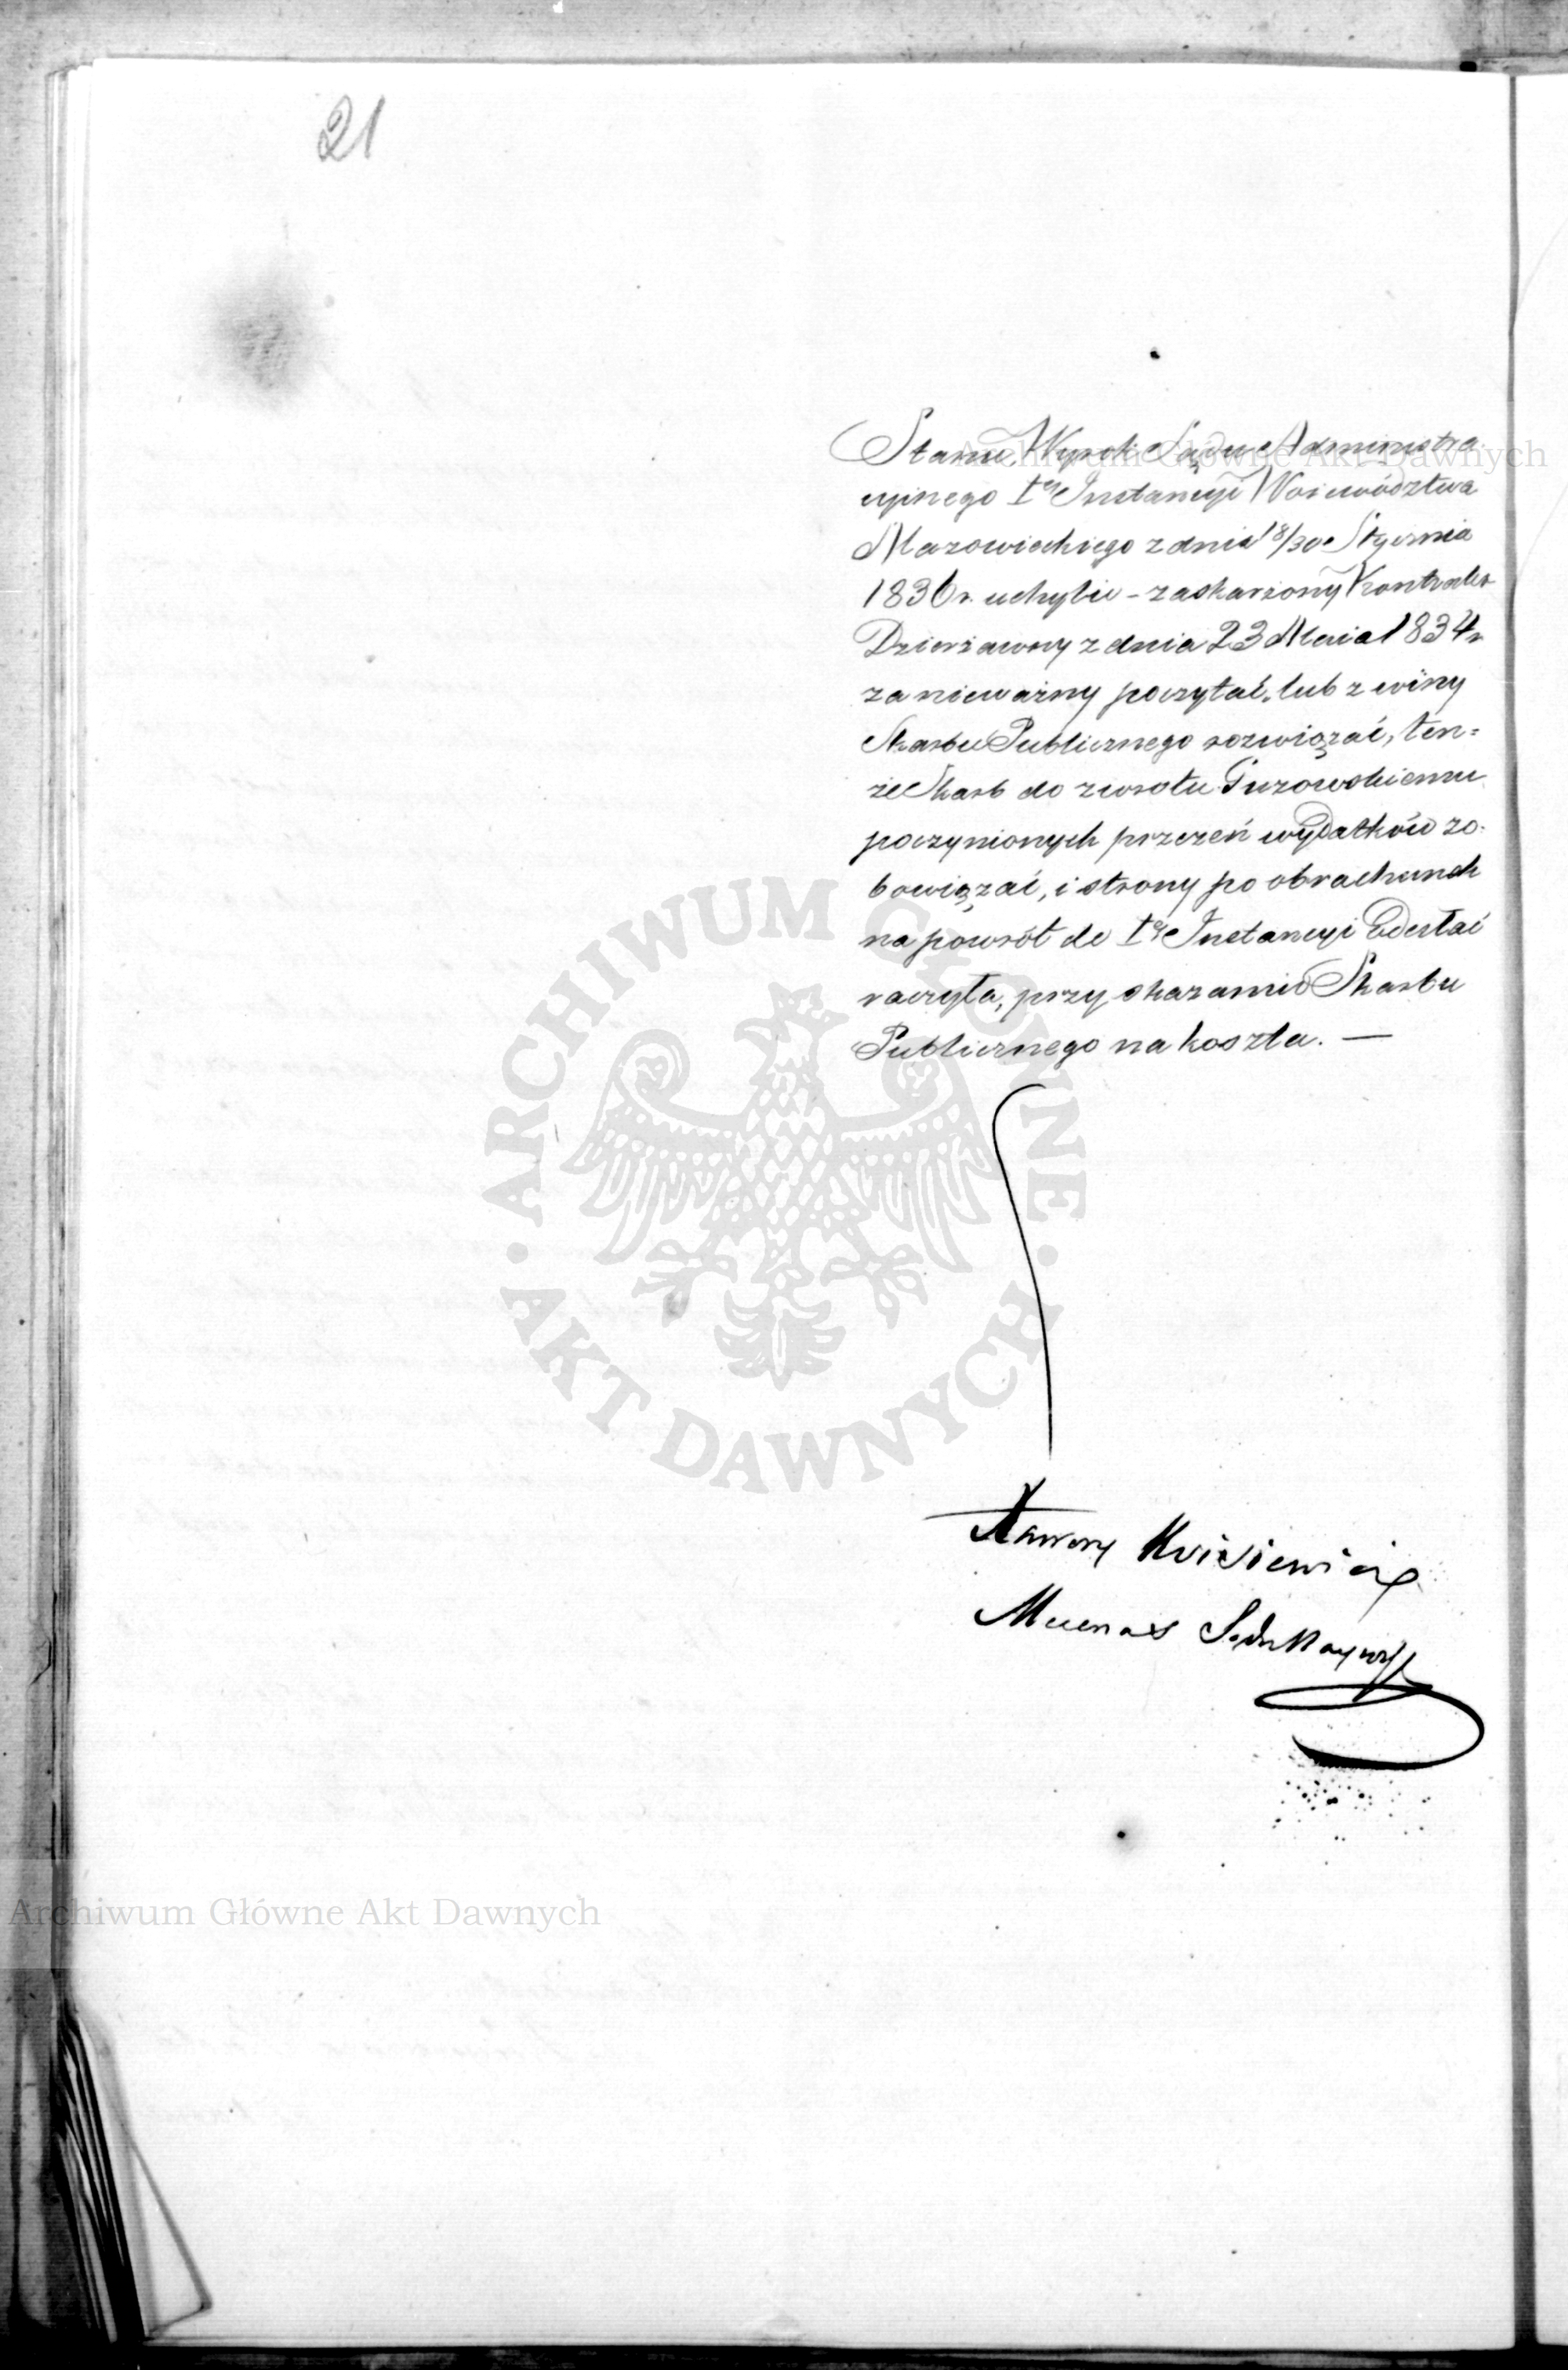 21
Stanu, Wyrok Sądu Administra
cyinego Iey Instancyi Woiewództwa
Mazowieckiego z dnia 18/30 Stycznia
1836 r. uchylić - zaskarżony Kontrakt
Dzierżawny z dnia 23 Maia 1834 r
za nieważny poczytać, lub z winy
Skarbu Publicznego rozwiązać, ten=
że Skarb do zwrotu Guzowskiemu
poczynionych przezeń wydatków zo-
bowiązać, i strony po obrachunek
na powrót do Iey Instancyi Odesłać
raczyła, przy skazaniu Skarbu
Publicznego na koszta. —
Xawery
Mecenas
ARCHIWUM GŁÓWNE
AKT DAWNYCH
Archiwum Główne Akt Dawnych
Archiwum Główne Akt Dawnych